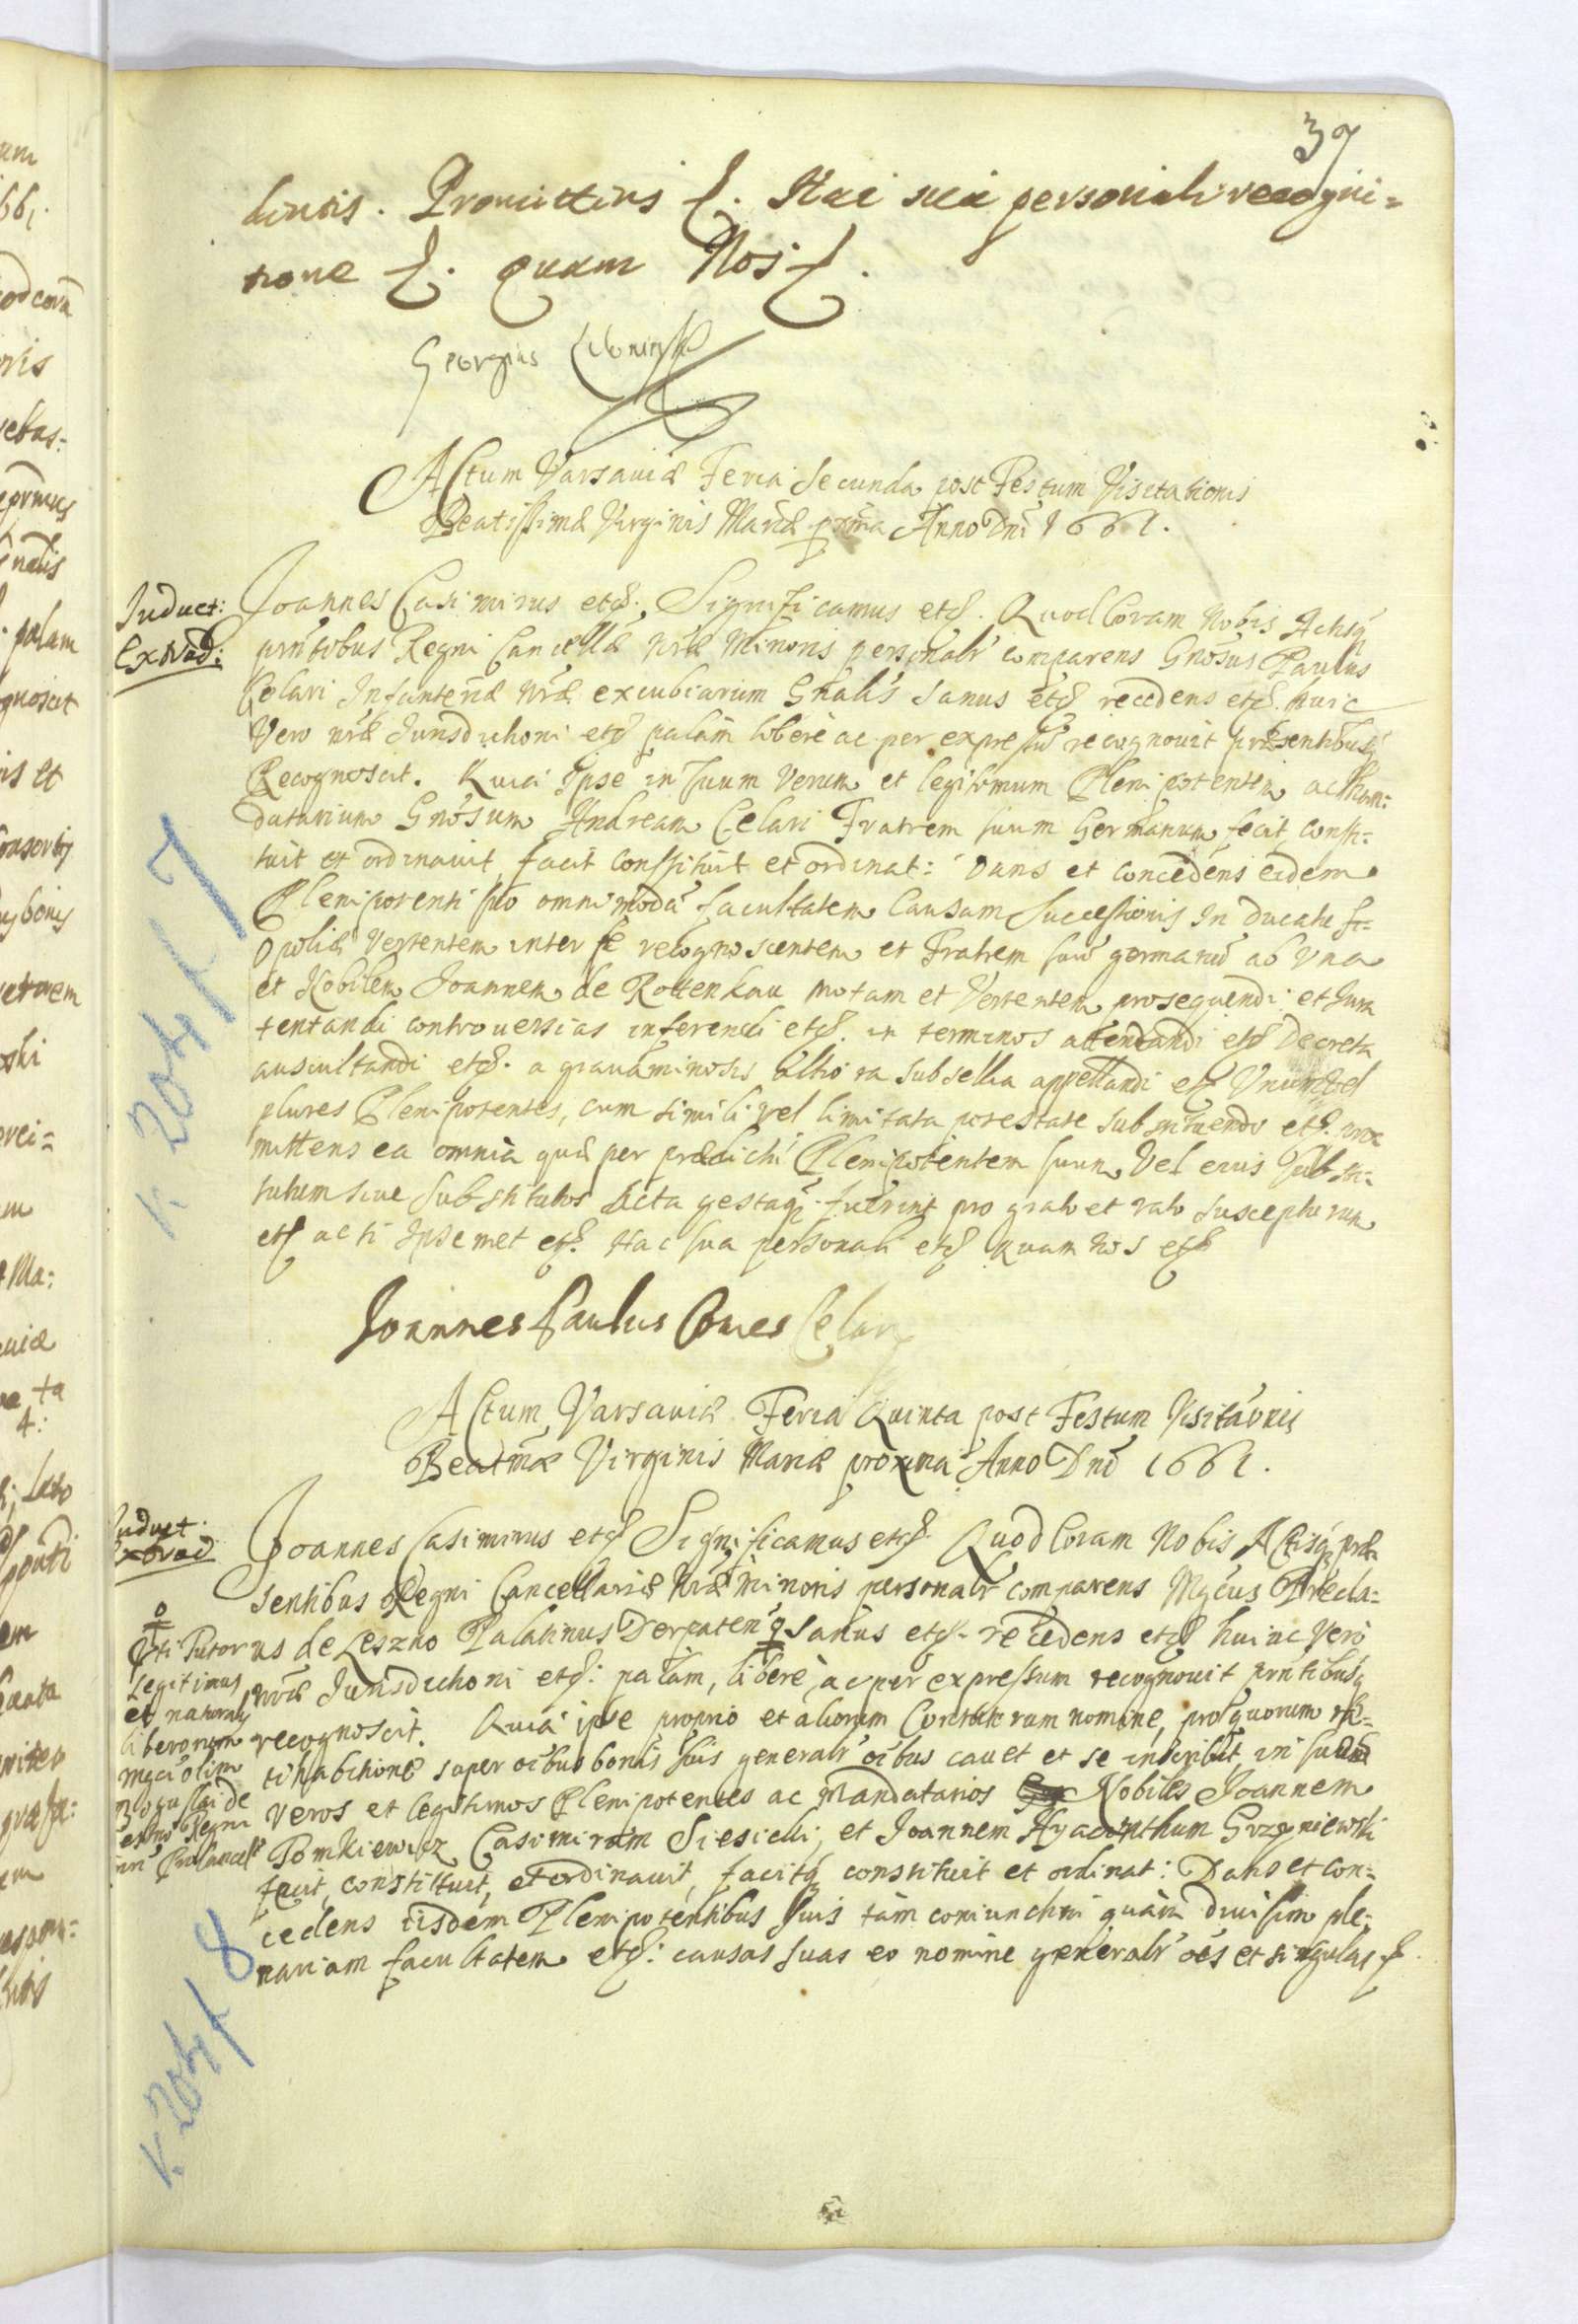 39
Promittens etc. Hac sua personali recogni=
tione etc. Quam Nos etc.
Georgius
Actum Varsaviæ Feria Secunda post Festum Visitationis
Beatissimæ Virginis Mariæ pxima Anno Dni 1661.
Induct:
Extrad:
Joannes Casimirus etc. Significamus etc. Quod Coram Nobis Actisq
pntibus Regni Cancellæ nræ Minoris personalr comparens Gnosus Paulus
Celari Infanteriæ nræ excubiarum Gnalis sanus etc recedens etc. huic
Vero nræ Jurisdictioni etc palam libere ac per expressũ recognouit præsentibusq
Recognoscit. Quia Ipse in suum Verum et legitimum Plenipotentem ac Man:
datarium Gnosum Andream Celari Fratrem suum Germanum fecit, consti=
tuit et ordinauit, facit Constituit et ordinat: Dans et concedens eidem
Plenipotenti suo omnimodã facultatem Causam Successionis In Ducatu
Opoliæ Vertentem inter se recognoscentem et Fratrem suũ germanũ ab Vna
et Nobilem Joannem de Rottenkau motam et Vertentem prosequendi et
tentandi controuersias inferendi etc. in terminos attentandi etc Decreta
auscultandi etc. a grauaminosis altiora subsellia appellandi etc Vnum Vel
plures Plenipotentes, cum simili vel limitata potestate substituendo etc. pro
mittens ea omnia quæ per prædictũ Plenipotentem suum Vel eius Substi=
tutum siue Substitutos acta gestaq fuerint pro grato et rato suscepturum
etc ac si Ipsemet etc. Hac sua personali etc Quam Nos etc
Joannes Paulus Comes Celari
Actum Varsauiæ Feria Quinta post Festum Visitaonis
Beatmæ Virginis Mariæ proxima Anno Dni 1661.
Induct.
Extrad
Joannes Casimirus etc Significamus etc. Quod Coram Nobis Actisq præ
sentibus Regni Cancellariæ Nræ Minoris personalr comparens Mgcus Præcla=
rus de Leszno Palatinus Derpaten sanus etc. recedens etc huinc Vero
nræ Jurisdictioni etc: palam, libere, ac per expressum recognouit pntibusq
recognoscit. Quia ipse proprio et aliorum Contutorum nomine, pro quorum ra=
tihabitione super oibus bonis suis generalr oibus cauet et se inscribit, in suos
veros et legitimos Plenipotentes ac Mandatarios Nobiles Joannem
Pomkiewicz, Casimirum Siesicki, et Joannem Hyacinthum
fecit, constituit, et ordinauit, facitq constituit et ordinat: Dans et con=
cedens iisdem Plenipotentibus suis tam coniunctim quàm diuisim ple=
nariam facultatem etc: causas suas eo nomine generalr oes et singulas etc.
Vti Tutor
Legitimus
et naturalis
liberorum
Mgci olim
Regni
Procancell